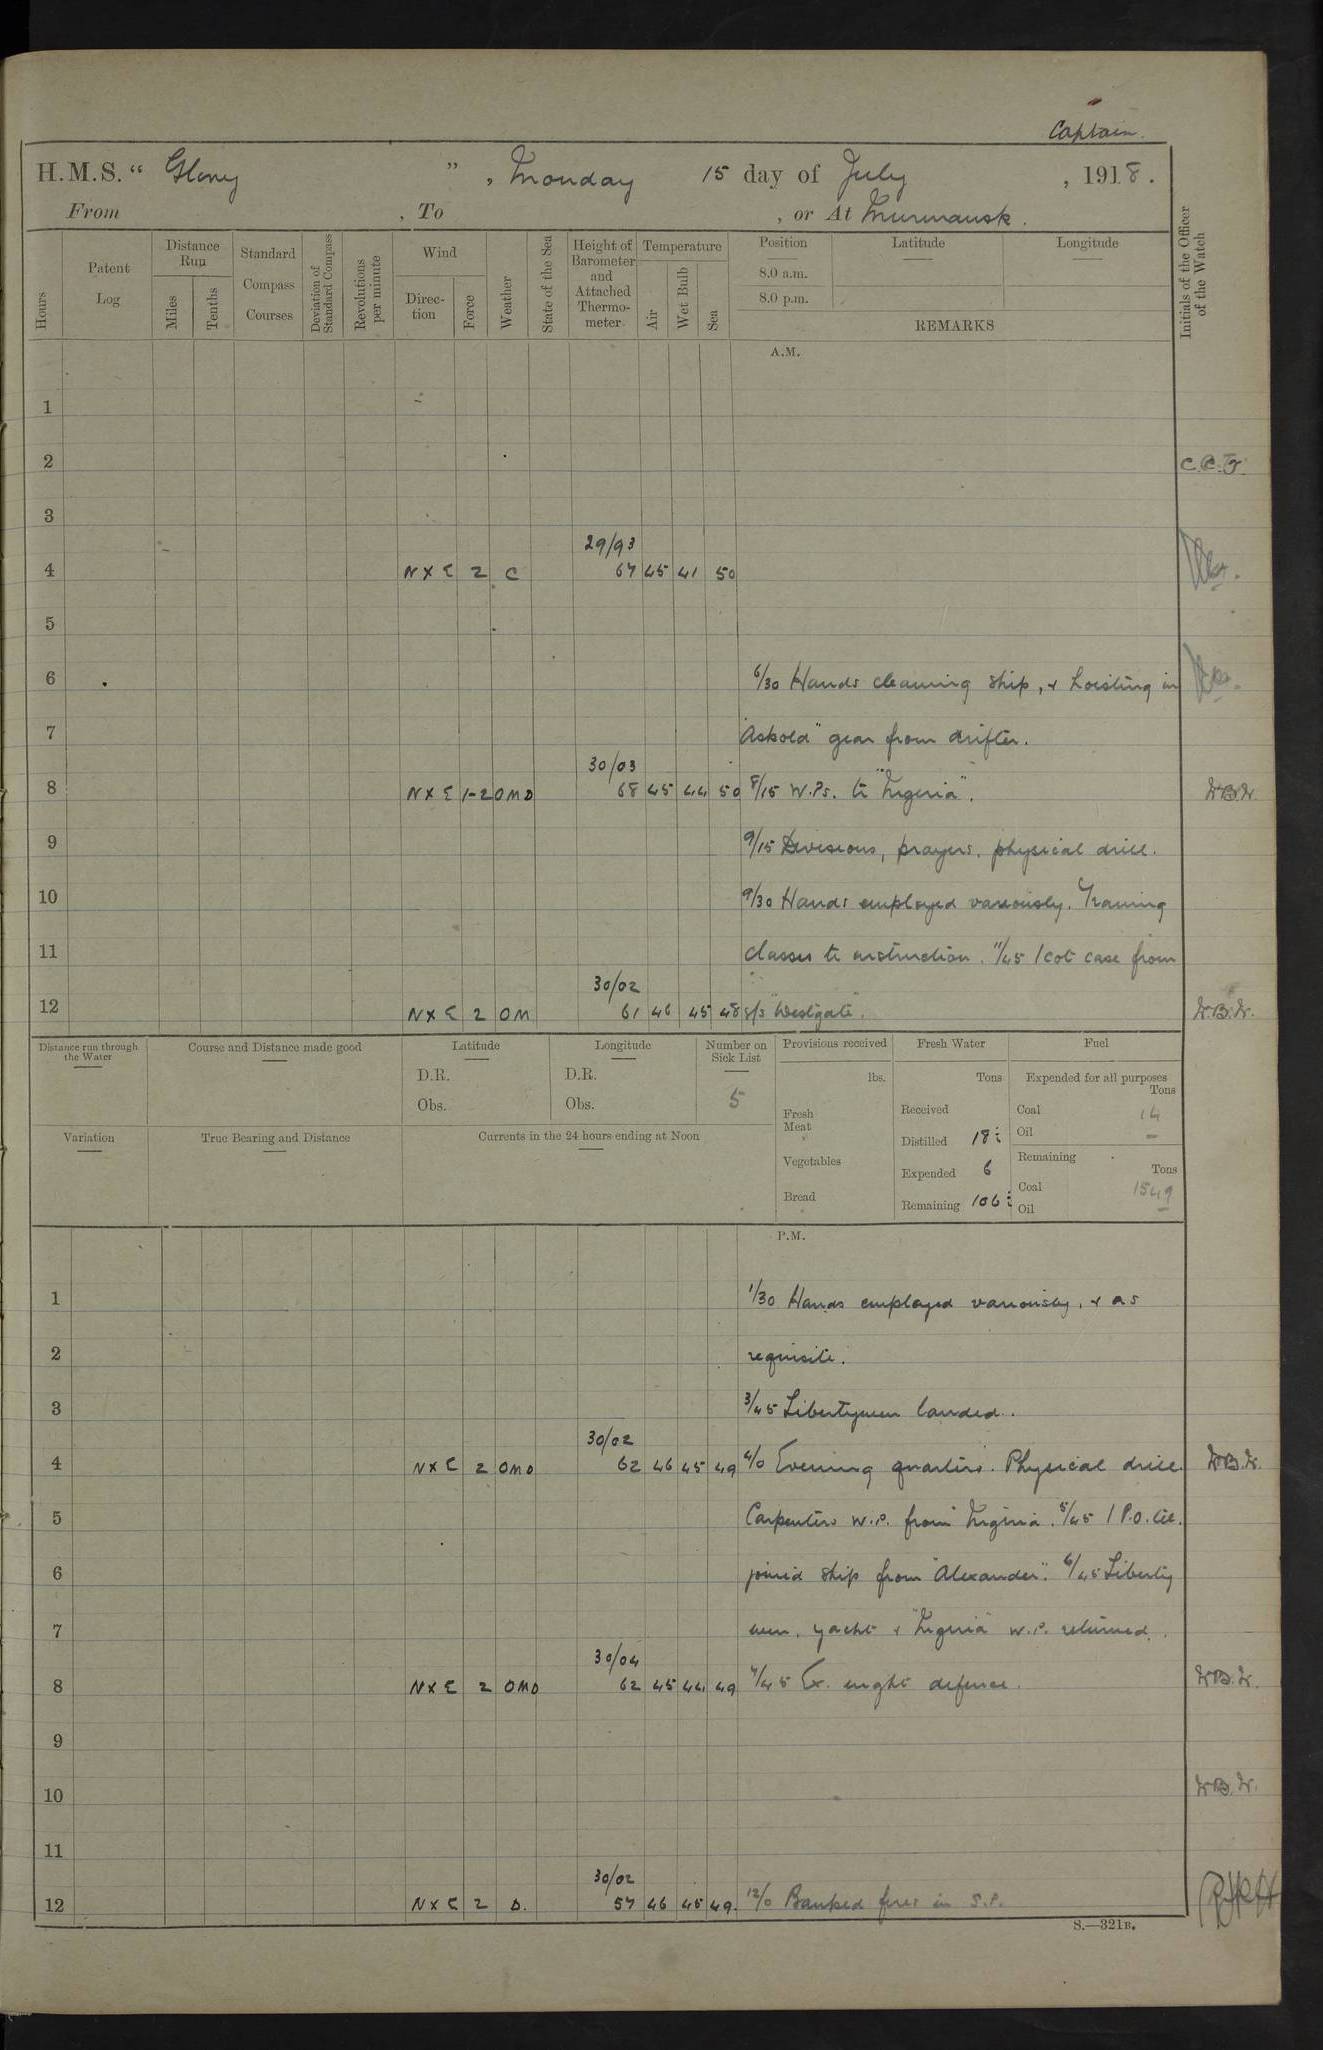 Captain.
H.M.S. “ Glory ” , Monday 15 day of July , 1918.
From , To , or At Murmansk.
Hours
Patent Log
Distance Run
Miles
Tenths
Standard Compass Courses
Deviation of Standard Compass
Revolutions per minute
Wind
Direction
Force
Weather
State of the Sea
Height of Barometer and Attached Thermometer
Temperature
Air
Wet Bulb
Sea
Position
8.0 a.m.
8.0 p.m.
Latitude
Longitude
REMARKS
Initials of the Officer of the Watch
A.M.
1
2
3
29/93
4 N X E 2 C 67 45 41 50
5
6 6/30 Hands cleaning ship, & hoisting in
7 "Askold" gear from drifter.
30/03
8 N X E 1-2 OMD 68 45 44 50 8/15 W.Ps. to "Nigeria". W.B.W.
9 9/15 Divisions, prayers, physical drill.
10 9/30 Hands employed variously. Training
11 classes to instruction. 11/45 1 cot case from
30/02
12 N X E 2 OM 61 46 45 48 s/s "Westgate". W.B.W.
Distance run through the Water
Course and Distance made good
Latitude
D.R.
Obs.
Longitude
D.R.
Obs.
Number on Sick List
5
Provisions received
lbs.
Fresh Meat
Vegetables
Bread
Fresh Water
Tons
Received
Distilled 18
Expended 6
Remaining 106
Fuel
Expended for all purposes
Tons
Coal 14
Oil —
Remaining
Tons
Coal 1549
Oil —
Variation
True Bearing and Distance
Currents in the 24 hours ending at Noon
P.M.
1 1/30 Hands employed variously, & as
2 requisite.
3 3/45 Libertymen landed.
30/02
4 N X E 2 OMD 62 46 45 49 4/0 Evening quarters. Physical drill W.B.W.
5 Carpenters W.P. from Nigeria. 5/45 1 P.O. Tel.
6 joined ship from "Alexander". 6/45 Liberty
7 men, yacht & "Nigeria" W.P. returned.
30/04
8 N X E 2 OMD 62 45 44 49 7/45 Ex. night defence. W.B.W.
9
10 W.B.W.
11
30/02
12 N X E 2 O. 57 46 45 49. 12/0 Banked fires in S.P.
S.—321B.